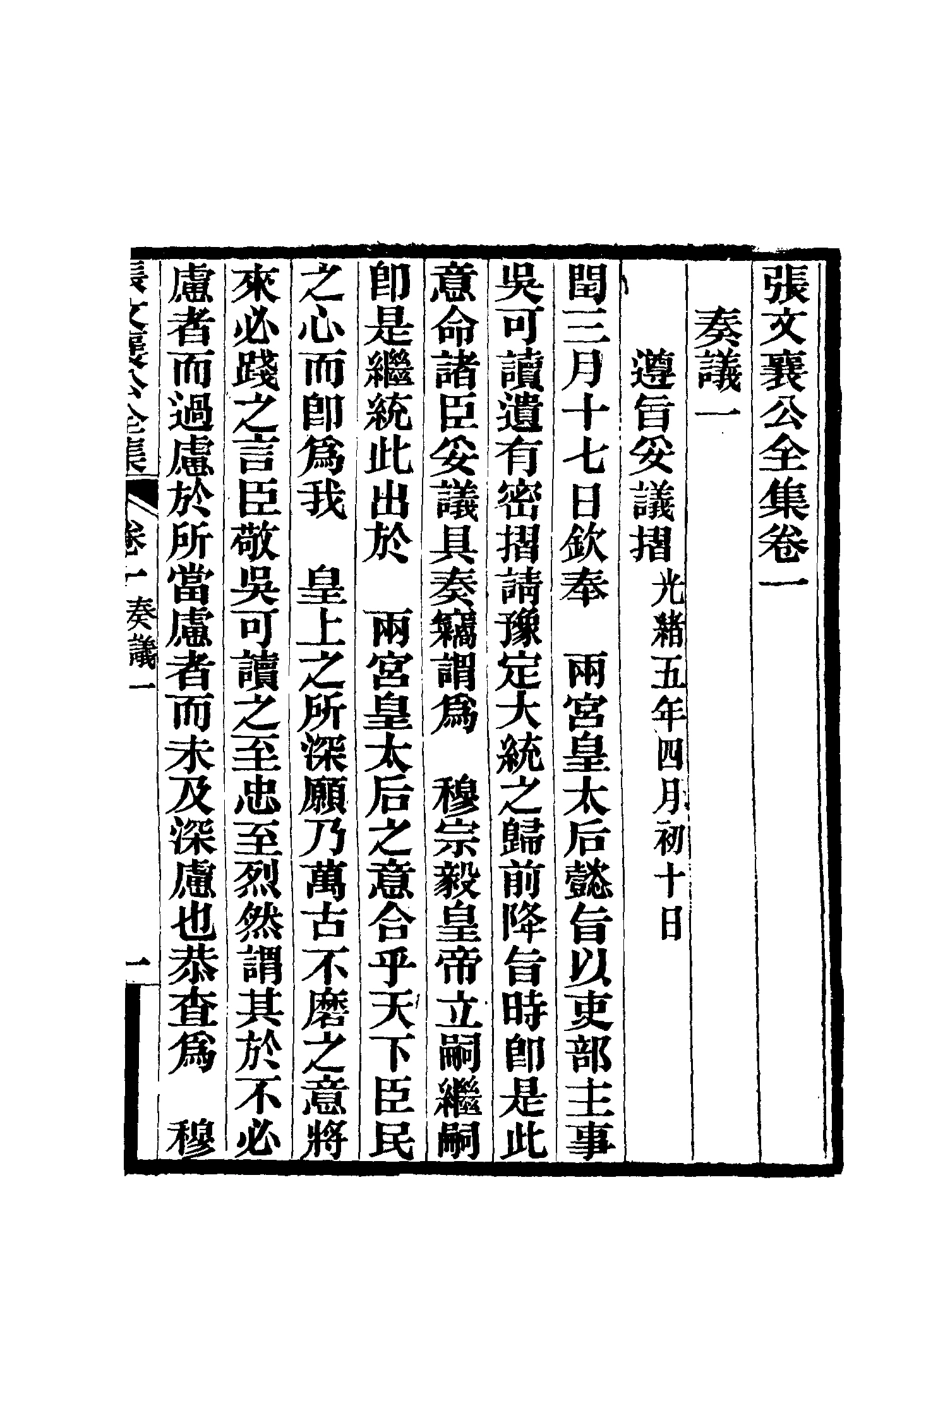 張文襄公全集卷一
奏議一
遵旨妥議摺 光緒五年四月初十日
閏三月十七日欽奉　兩宮皇太后懿旨以吏部主事
吳可讀遺有密摺請豫定大統之歸前降旨時卽是此
意命諸臣妥議具奏竊謂爲　穆宗毅皇帝立嗣繼嗣
卽是繼統此出於　兩宮皇太后之意合乎天下臣民
之心而卽爲我　皇上之所深願乃萬古不磨之意將
來必踐之言臣敬吳可讀之至忠至烈然謂其於不必
慮者而過慮於所當慮者而未及深慮也恭查爲　穆
張文襄公全集　卷一　奏議一　一